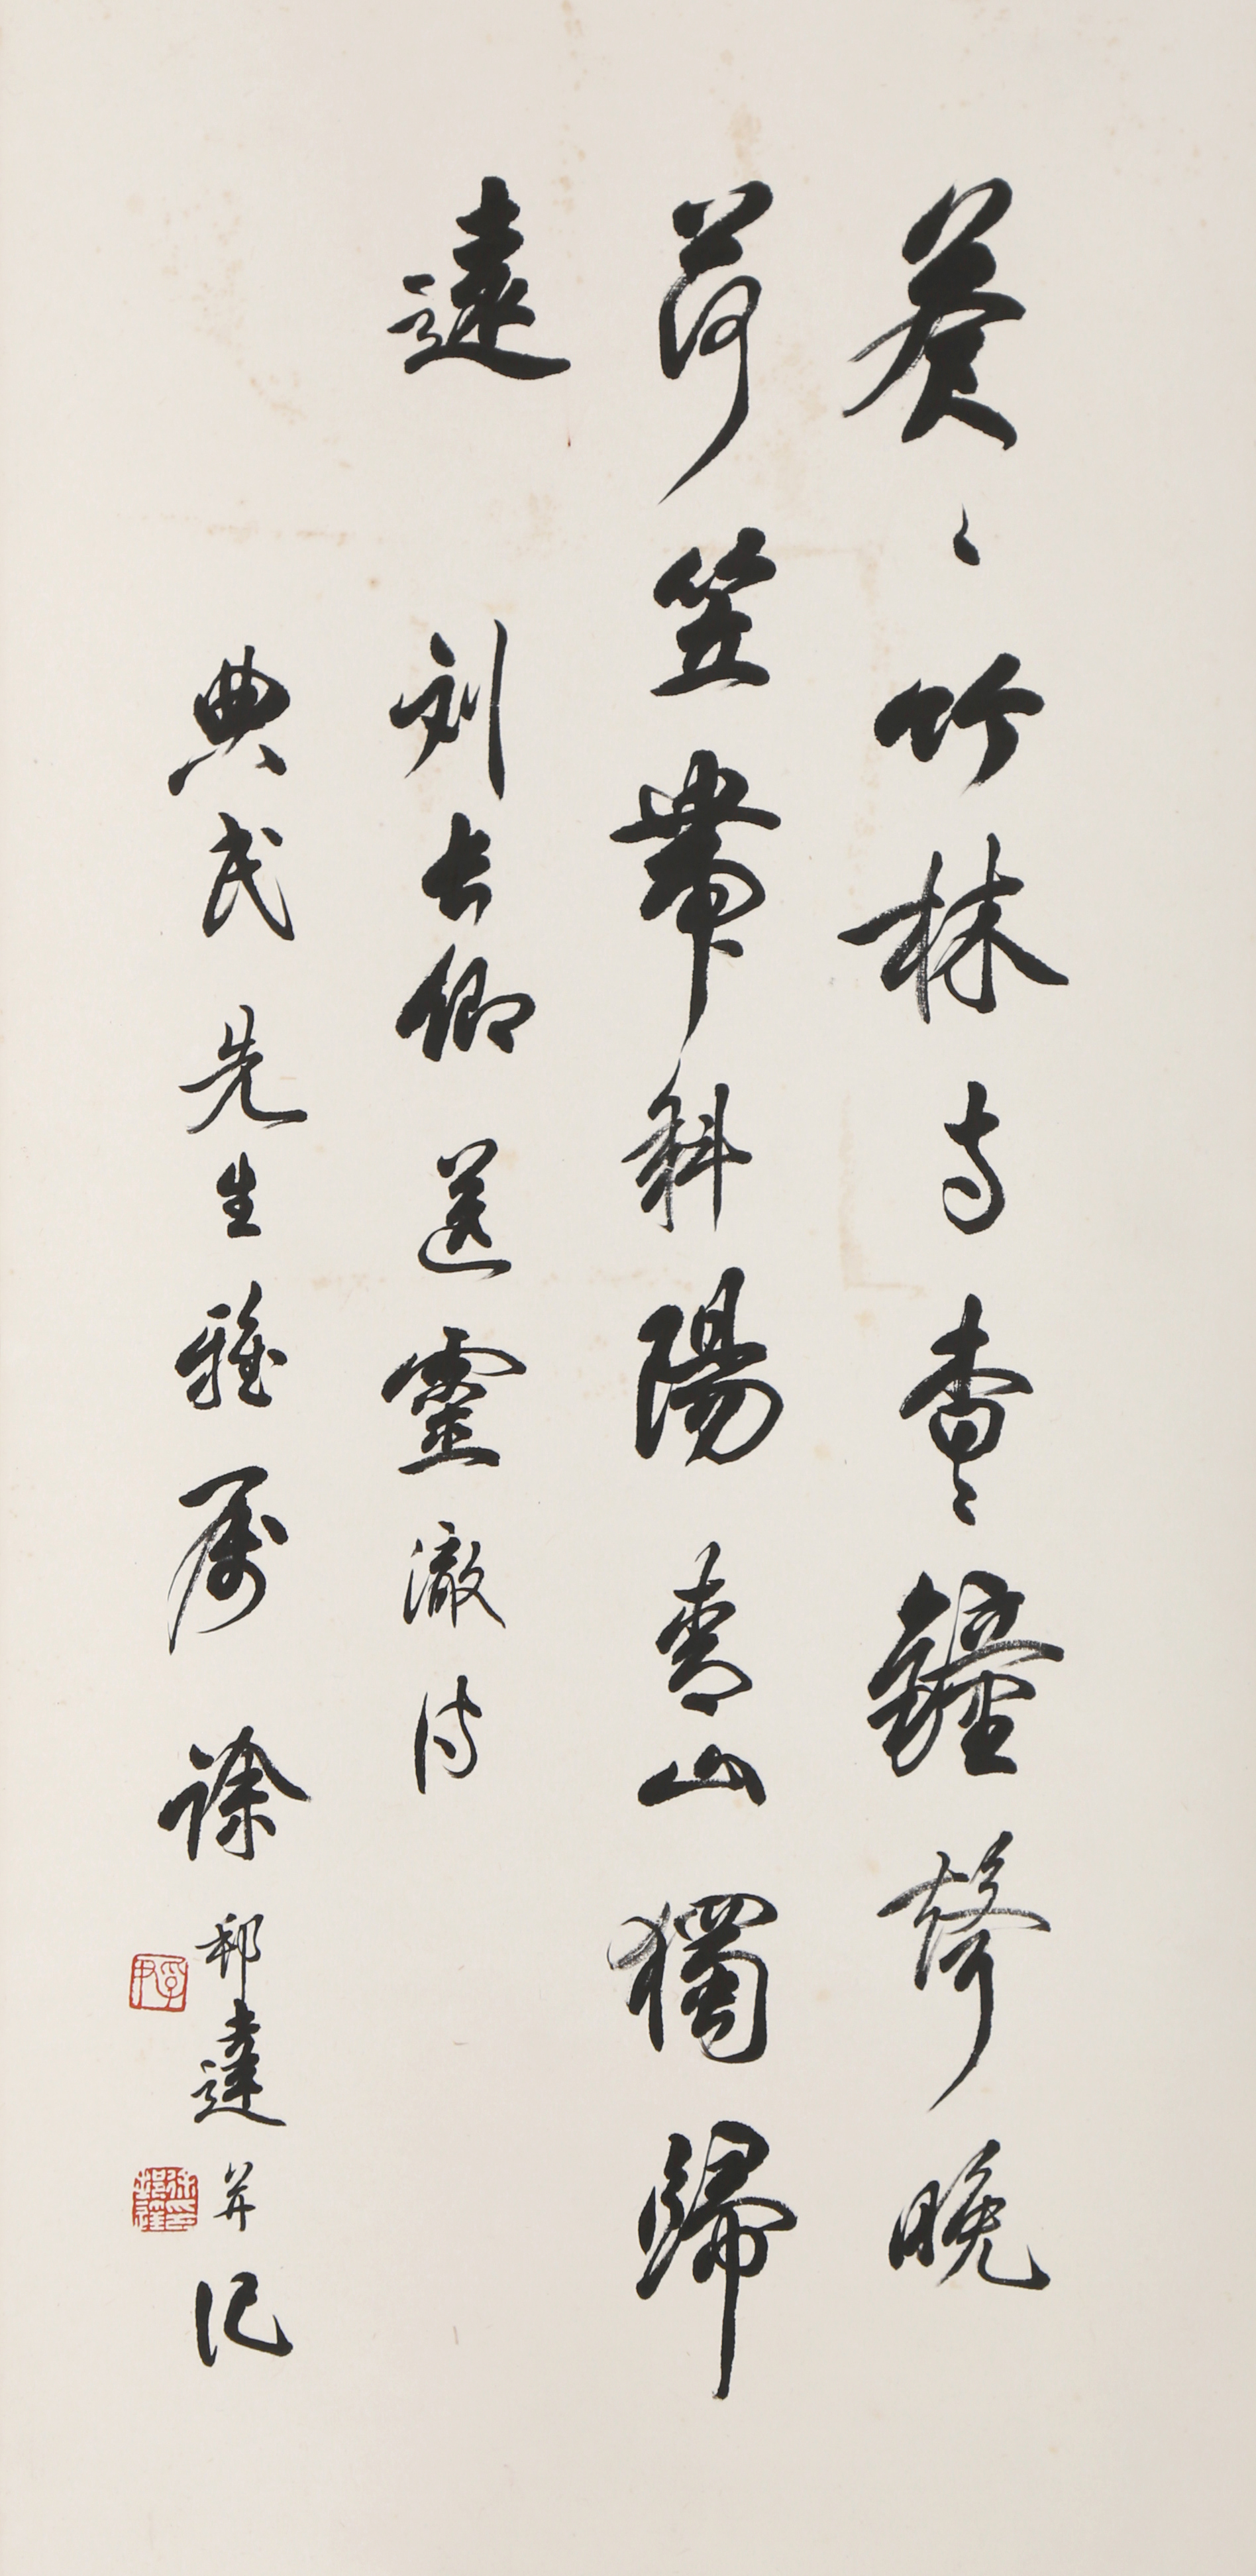 蒼〻竹林寺杳〻鐘聲晚
荷笠帶斜陽青山獨歸
遠 劉長卿送靈澈詩
典民先生雅属 徐邦達并記
孚尹